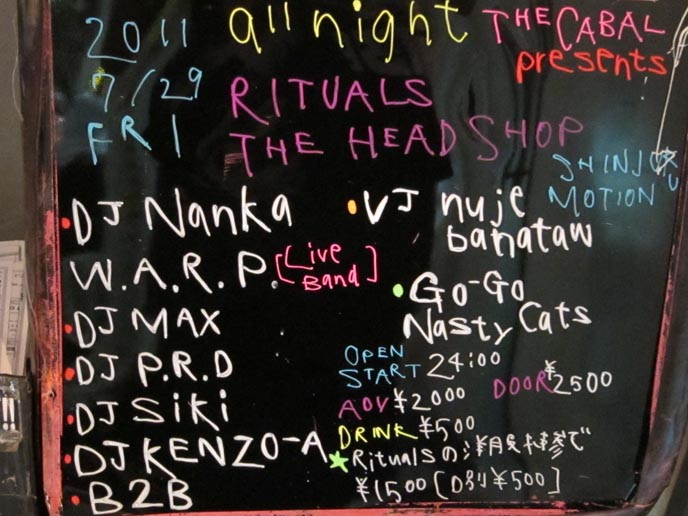 2011 all night THE CABAL
presents
7/29 RITUALS
FRI THE HEAD SHOP
SHINJUKU
MOTION
DJ Nanka
W.A.R.P. [Live Band]
DJ MAX
DJ P.R.D
DJ Siki
DJ KENZO-A
B2B
VJ nuje
banataw
GO-GO
Nasty Cats
OPEN
START 24:00
ADV ¥2000 DOOR ¥2500
DRINK ¥500
★Ritualsの洋服持参で
¥1500[D別り¥500]
!!